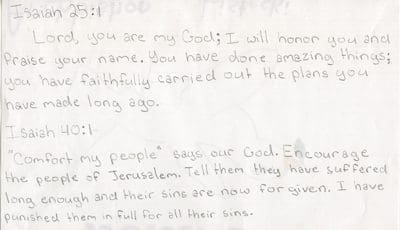 Isaiah 25:1
Lord, you are my God; I will honor you and
Praise your name. You have done amazing things;
you have faithfully carried out the plans you
have made long ago.
Isaiah 40:1-
"Comfort my people" says our God. Encourage
the people of Jerusalem. Tell them they have suffered
long enough and their sins are now for given. I have
punished them in full for all their sins.